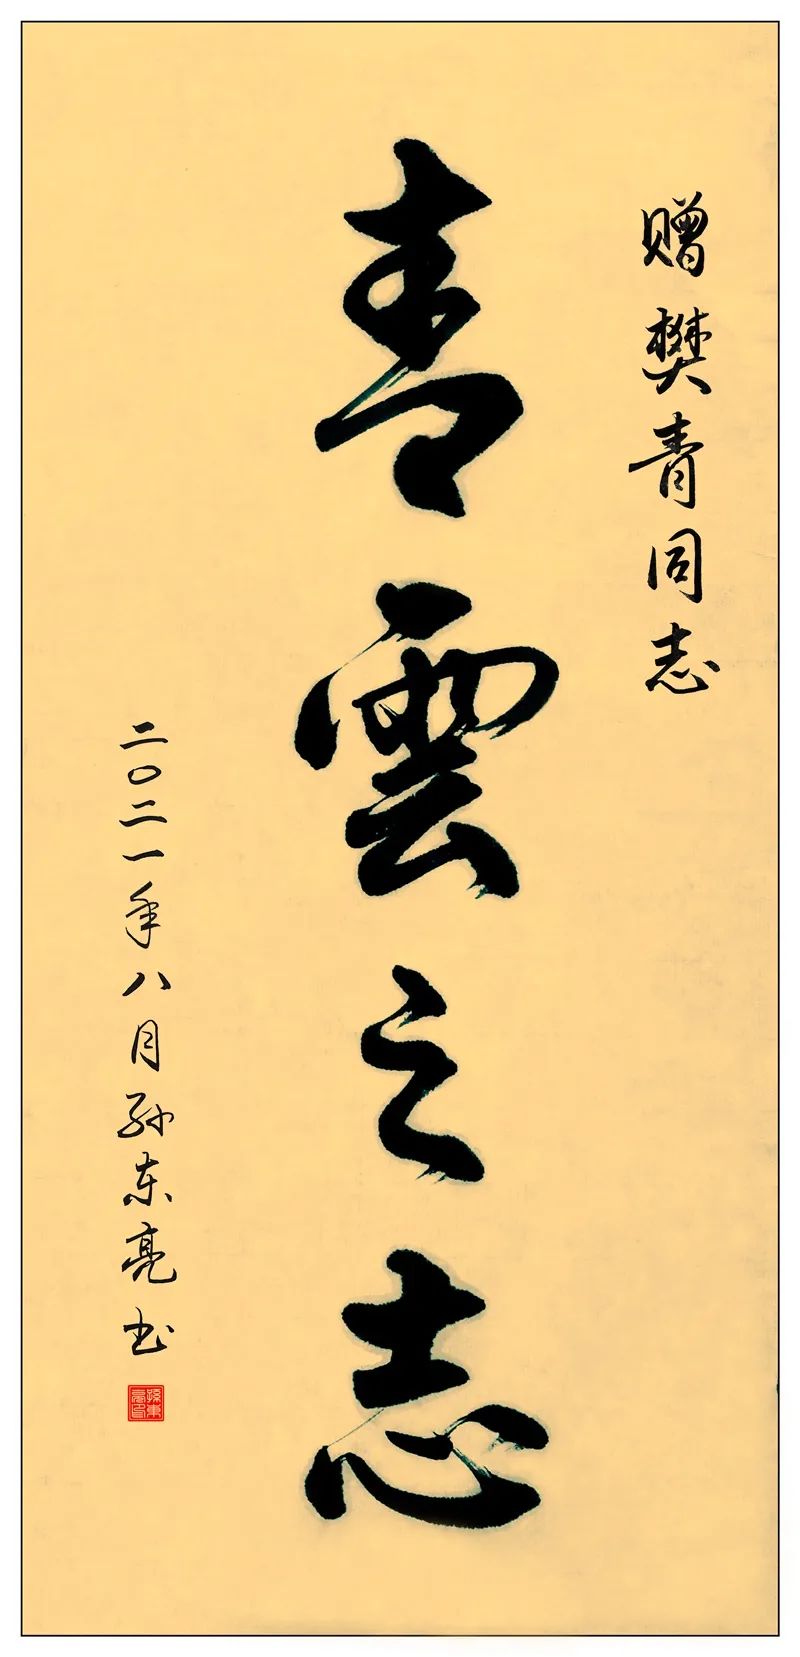 赠樊青同志
青雲之志
二〇二一年八月孙东亮书
孫東亮印